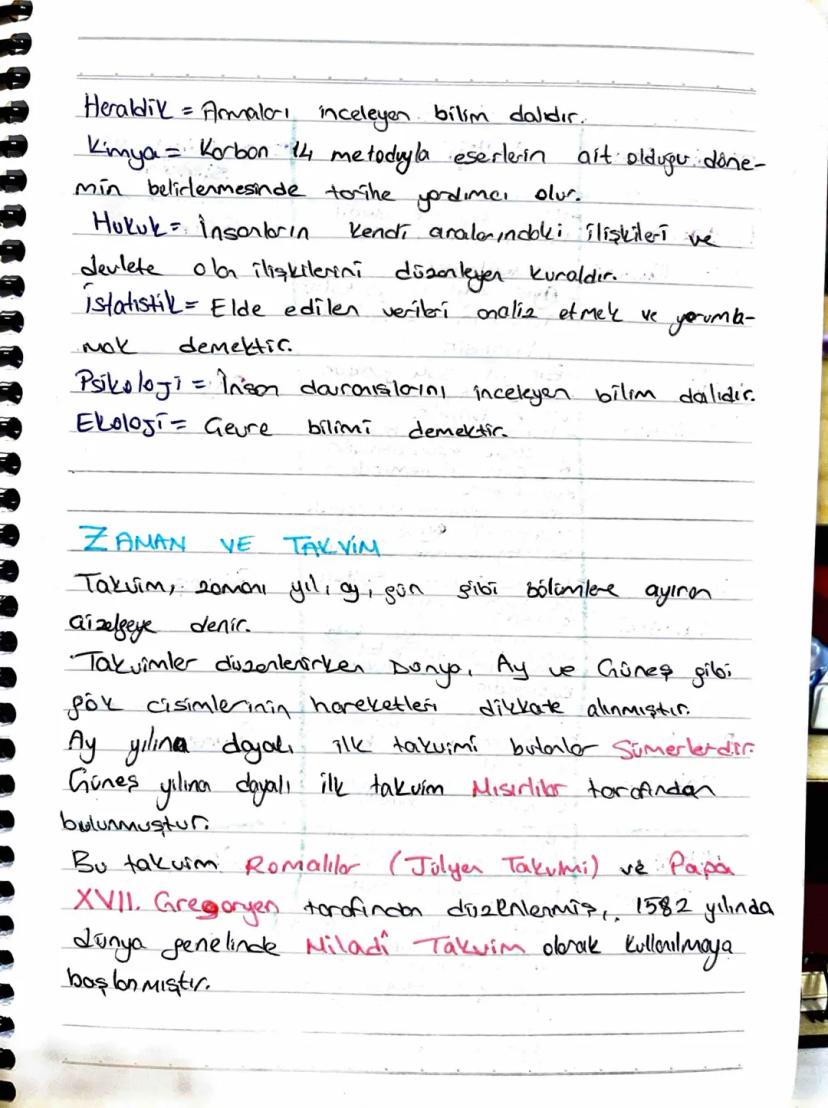 Heraldik = Armaları inceleyen bilim dalıdır.
Kimya = Karbon 14 metoduyla eserlerin ait olduğu döne-
min belirlenmesinde tarihe yardımcı olur.
Hukuk = İnsanların kendi aralarındaki ilişkileri ve
devlete olan ilişkilerini düzenleyen kuraldır.
İstatistik = Elde edilen verileri analiz etmek ve yorumla-
mak demektir.
Psikoloji = İnsan davranışlarını inceleyen bilim dalıdır.
Ekoloji = Çevre bilimi demektir.
ZAMAN VE TAKVİM
Takvim, zamanı yıl, ay, gün gibi bölümlere ayıran
çizelgeye denir.
Takvimler düzenlenirken Dünya, Ay ve Güneş gibi
gök cisimlerinin hareketleri dikkate alınmıştır.
Ay yılına dayalı ilk takvimi bulanlar Sümerlerdir.
Güneş yılına dayalı ilk takvim Mısırlılar tarafından
bulunmuştur.
Bu takvim Romalılar (Jülyen Takvimi) ve Papa
XVII. Gregoryen tarafından düzenlenmiş, 1582 yılında
dünya genelinde Miladî Takvim olarak kullanılmaya
başlanmıştır.